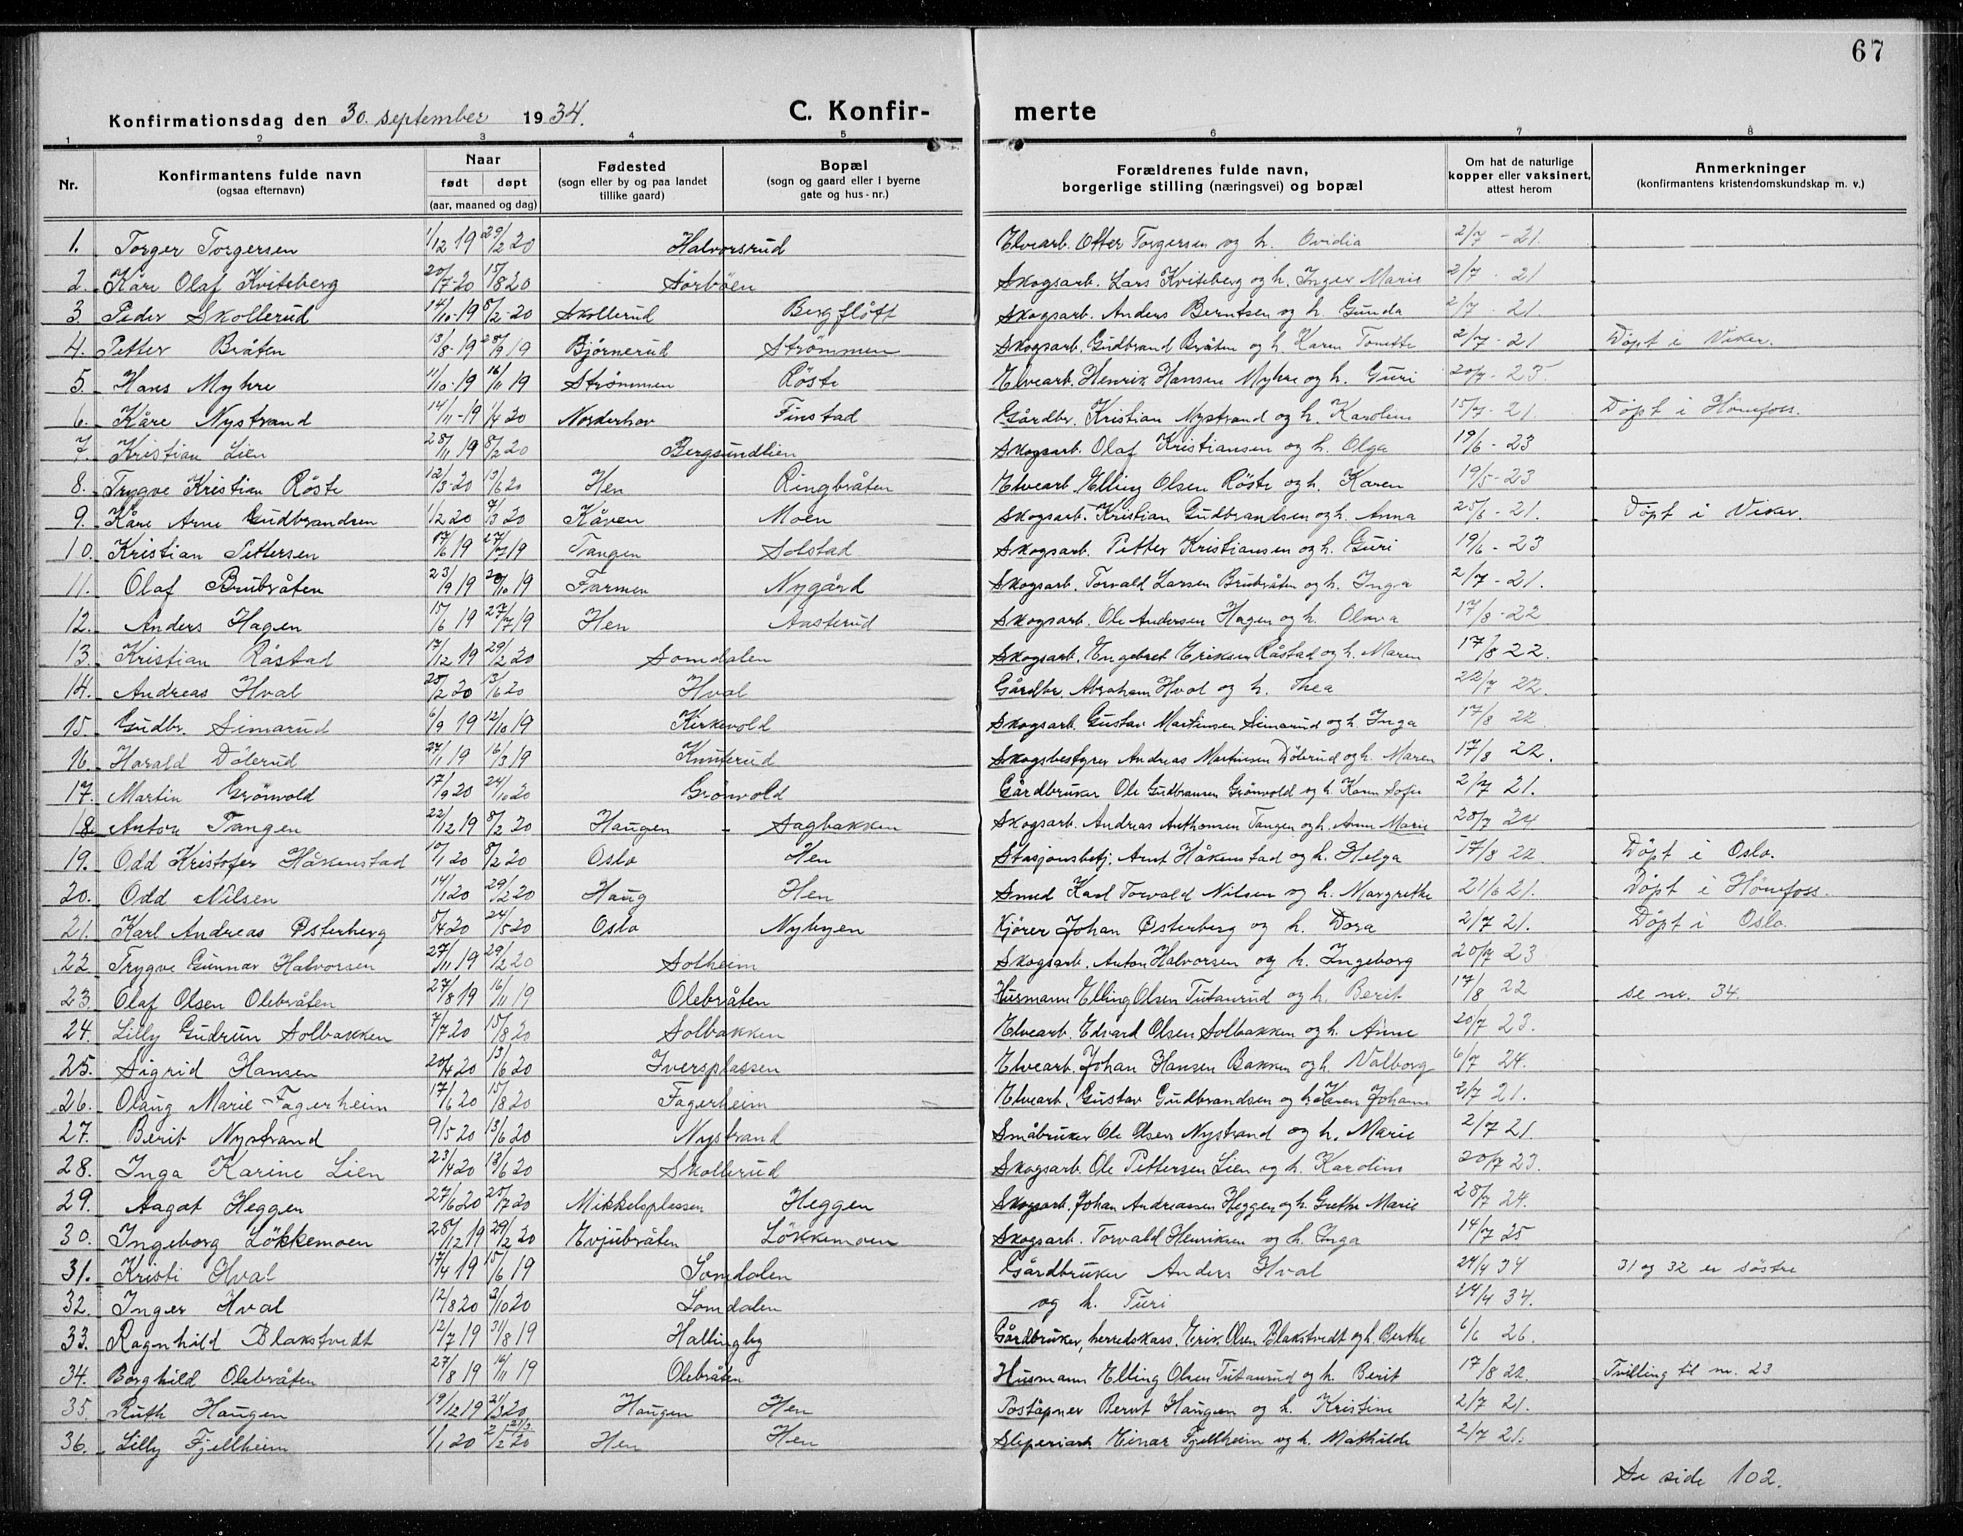 67
Konfirmationsdag den 30. september 1934. C. Konfir- merte
1 2 3 4 5 6 7 8
Nr. Konfirmantens fulde navn (ogsaa efternavn) Naar født døpt (aar, maaned og dag) Fødested (sogn eller by og paa landet tillike gaard) Bopæl (sogn og gaard eller i byerne gate og hus-nr.) Forældrenes fulde navn, borgerlige stilling (næringsvei) og bopæl Om hat de naturlige kopper eller vaksinert, attest herom Anmerkninger (konfirmantens kristendomskundskap m. v.)
1. Torger Torgersen 1/12 19 29/2 20 Halvorsrud Elvearb. Otter Torgersen og h. Ovidia 2/7 - 21.
2. Kåre Olaf Kviteberg 20/7-20 15/8 20 Sørbøen Skogsarb. Lars Kviteberg og h. Inger Marie 2/7 - 21
3. Peder Skollerud 14/10-19 8/2-20 Skollerud Bergflött Skogsarb. Anders Berntsen og h. Gunda 2/7 - 21.
4. Petter Bråten 13/8-19 28/9 19 Bjørnerud Strømmen Skogsarb. Gudbrand Bråten og h. Karen Tonette 2/7 - 21 Døpt i Viker.
5 Hans Myhre 11/10-19 16/11 19 Strømmen Røste Elvearb. Henrik Hansen Myhre og h. Guri 20/7 - 25
6. Kåre Nystrand 14/11-19 1/4 20 Norderhov Finstad Gårdbr. Kristian Nystrand og h. Karoline 15/7 - 21. Døpt i Hønefoss.
7. Kristian Lien 28/11 19 8/2 20 Bergsundlien Skogsarb. Olaf Kristiansen og h. Olga 19/6 - 23
8. Trygve Kristian Røste 12/3-20 13/6 20 Hen Ringbråten Elvearb. Elling Olsen Røste og h. Karen 19/5-23
9. Kåre Arne Gudbrandsen 1/2 20 7/3 20 Kåven Moen Skogsarb. Kristian Gudbrandsen og h. Anna 25/6 - 21. Døpt i Viker.
10. Kristian Pettersen 17/6 19 27/7 19 Tangen Solstad Skogsarb. Petter Kristiansen og h. Guri 19/6 - 23
11. Olaf Brubråten 23/9 19 20/10 19 Farmen Nygård Skogsarb. Torvald Larsen Brubråten og h. Inga 2/7 - 21.
12. Anders Hagen 15/6 19 27/7 19 Hen Aasterud Skogsarb. Ole Andersen Hagen og h. Olava 17/8 - 22
13. Kristian Råstad 17/12 19 29/2 20 Somdalen Skogsarb. Engebret Eriksen Råstad og h. Maren 17/8 22.
14. Andreas Hval 28/2 20 13/6 20 Hval Gårdbr. Abraham Hval og h. Thea 22/7 22.
15. Gudbr. Simarud 6/9 19 12/10 19 Kirkevold Skogsarb. Gustav Martinsen Simarud og h. Inga 17/8 22
16. Harald Dölerud 27/1 19 16/3 19 Knuterud Skogsbestyrer Andreas Martinsen Dölerud og h. Maren 17/8 22.
17. Martin Grönvold 17/9 20 24/10 20 Grönvold Gårdbruker Ole Gudbransen Grönvold og h. Karen Sofie 2/7 21.
18. Anton Tangen 22/12 19 8/2 20 Haugen - Sagbakken Skogsarb. Andreas Anthonsen Tangen og h. Anne Marie 20/7 24
19. Odd Kristofer Håkenstad 10/1 20 8/2 20 Oslo Hen Stasjonsbetj. Arnt Håkenstad og h. Helga 17/8 22. Døpt i Oslo.
20. Odd Nilsen 14/1 20 29/2 20 Haug Hen Smed Karl Torvald Nilsen og h. Margrethe 21/6 21. Døpt i Hønefoss.
21. Karl Andreas Østerberg 5/4 20 24/5 20 Oslo Nybyen Kjører Johan Østerberg og h. Dora 2/7 21. Døpt i Oslo.
22 Trygve Gunnar Halvorsen 27/11 19 29/2 20 Solheim Skogsarb. Anton Halvorsen og h. Ingeborg 20/7 23
23. Olaf Olsen Olebråten 27/8 19 16/11 19 Olebråten Husmann Elling Olsen Tutanrud og h. Berit 17/8 22 se nr. 34.
24. Lilly Gudrun Solbakken 7/7 20 15/8 20 Solbakken Elvearb. Edvard Olsen Solbakken og h. Anne 20/7 23.
25. Sigrid Hansen 20/4 20 13/6 20 Iversplassen Elvearb. Johan Hansen Bakken og h. Valborg 6/7 24.
26. Olaug Marie Fagerheim 17/6 20 15/8 20 Fagerheim Elvearb. Gustav Gudbrandsen og h. Karen Johann 2/7 21.
27. Berit Nystrand 9/5 20 13/6 20 Nystrand Småbruker Ole Olsen Nystrand og h. Marie 2/7 21.
28. Inga Karine Lien 23/4 20 13/6 20 Skollerud Skogsarb. Ole Pettersen Lien og h. Karoline 20/7 23.
29. Aagot Heggen 27/6 20 25/7 20 Mikkelsplassen Heggen Skogsarb. Johan Andreassen Heggen og h. Grethe Marie 28/7 24.
30. Ingeborg Løkkemoen 28/12 19 29/2 20 Evjubråten Løkkemoen Skogsarb. Torvald Henriksen og h. Inga 14/7 25
31. Kristi Hval 17/4 19 15/6 19 Somdalen Gårdbruker Anders Hval 24/4 34 31 og 32 er søstre
32. Inger Hval 12/8 20 3/10 20 Somdalen og h. Turi 24/4 34.
33. Ragnhild Blakstvedt 12/7 19 31/8 19 Hallingby Gårdbruker, herredskass. Erik Olsen Blakstvedt og h. Berthe 6/6 26.
34. Borghild Olebråten 27/8 19 16/11 19 Olebråten Husmann Elling Olsen Tutanrud og h. Berit 17/8 22. Tvilling til nr. 23
35. Ruth Haugen 19/12 19 21/3 20 Haugen Hen Poståpner Bernt Haugen og h. Kristine 2/7 21.
36. Lilly Fjellheim 1/1 20 Hen Hen Sliperiarb Einar Fjellheim og h. Mathilde 2/7 21.
Se side 102.